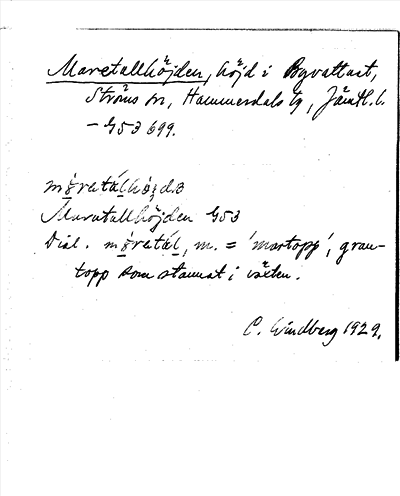 Maretallhöjden, höjd i Byvattnet,
Ströms sn, Hammerdals tg, Jämtl. l.
– G53 699.
møratálhö́jdɜ
Maratallhöjden G53
Dial. møratál, m. = 'martopp', gran-
topp som stannat i växten.
C. Lindberg 1929.